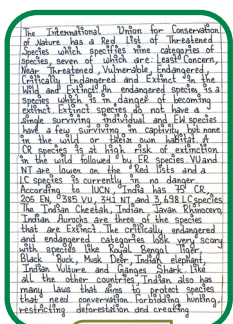 The International Union for Conservation
of Nature has a Red List of Threatened
Species which specifies nine categories of
species, seven of which are: Least Concern,
Near Threatened, Vulnerable, Endangered,
Critically Endangered and Extinct in the
Wild and Extinct. An endangered species is a
species which is in danger of becoming
extinct. Extinct species do not have a
single surviving individual and EW species
have a few surviving in captivity but none
in the wild or their own habitat. A
CR species is at high risk of extinction
in the wild followed by ER species. VU and
NT are lower on the Red lists and a
LC species is currently in no danger.
According to IUCN, India has 75 CR,
205 EN, 385 VU, 341 NT and 3,698 LC species
The Indian Cheetah, Indian Javan Rhinoceros,
Indian Aurochs are three of the species
that are Extinct. The critically endangered
and endangered categories look very scary
with species like Royal Bengal Tiger,
Black Buck, Musk Deer, Indian elephant,
Indian Vulture and Ganges Shark. Like
all the other countries, Indian also has
many laws that aims to protect species
that need convervation. Forbidding hunting,
restricting deforestation and creating